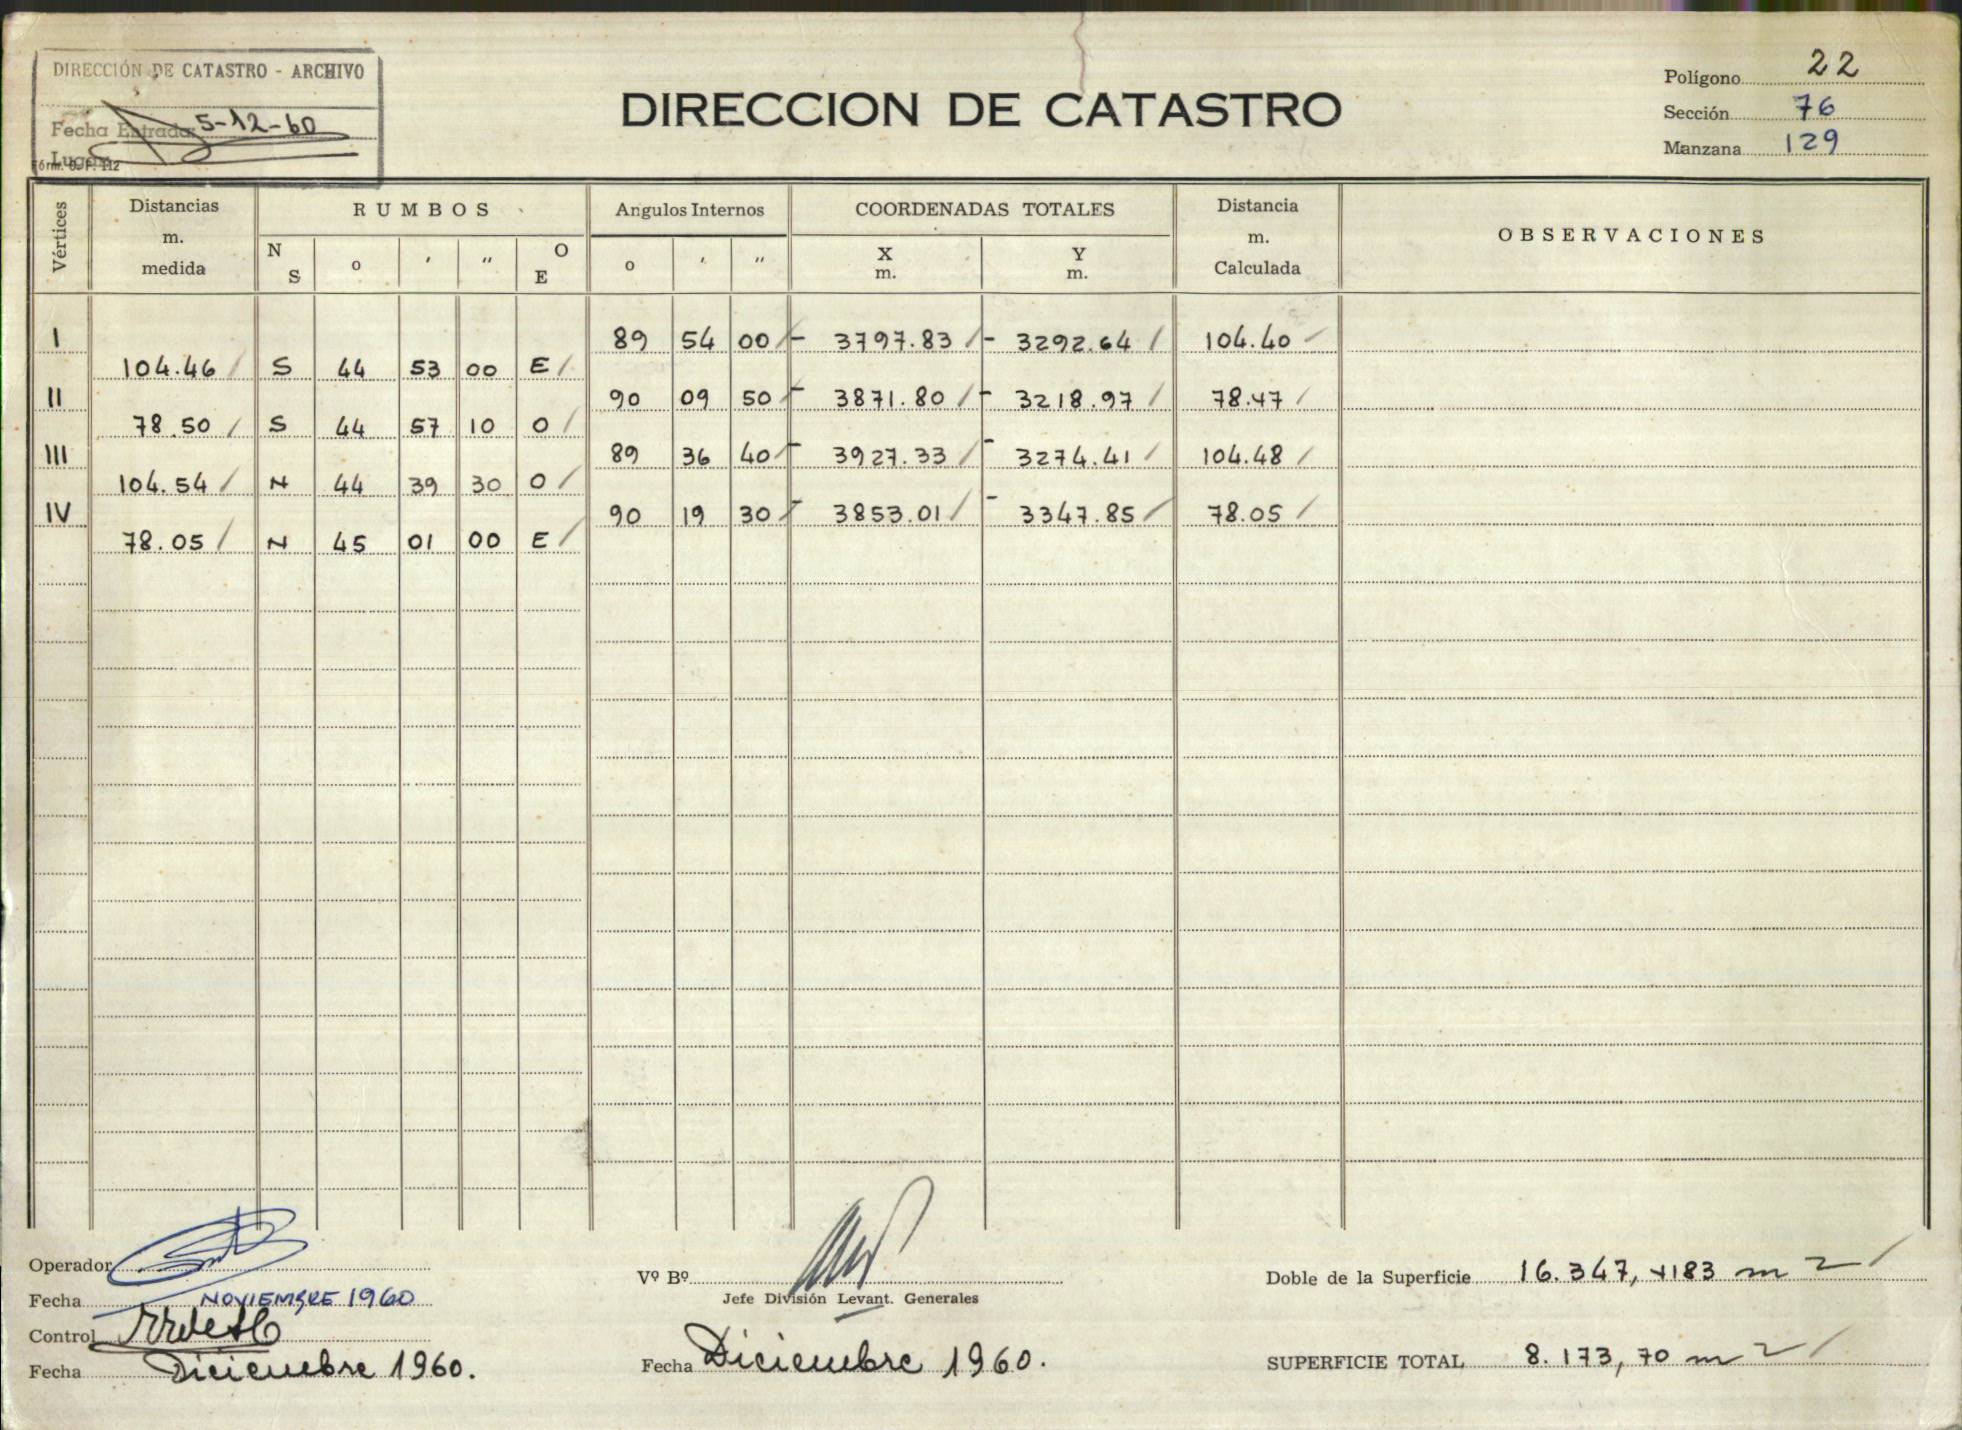 DIRECCIÓN DE CATASTRO - ARCHIVO
Fecha Entrada: 5-12-60
Lugar:
Fórm. D. P. 112
DIRECCION DE CATASTRO
Polígono 22
Sección 76
Manzana 129
Vértices Distancias m. medida RUMBOS Angulos Internos COORDENADAS TOTALES Distancia m. Calculada OBSERVACIONES
N S o ' " O E o ' " X m. Y m.
I 89 54 00 - 3797.83 - 3292.64 104.40
104.46 S 44 53 00 E
II 90 09 50 - 3871.80 - 3218.97 78.47
78.50 S 44 57 10 O
III 89 36 40 - 3927.33 - 3274.41 104.48
104.54 N 44 39 30 O
IV 90 19 30 - 3853.01 - 3347.85 78.05
78.05 N 45 01 00 E
Operador
Fecha NOVIEMBRE 1960
Control
Fecha Diciembre 1960.
Vº Bº
Jefe División Levant. Generales
Fecha Diciembre 1960.
Doble de la Superficie 16.347,4183 m2
SUPERFICIE TOTAL 8.173,70 m2